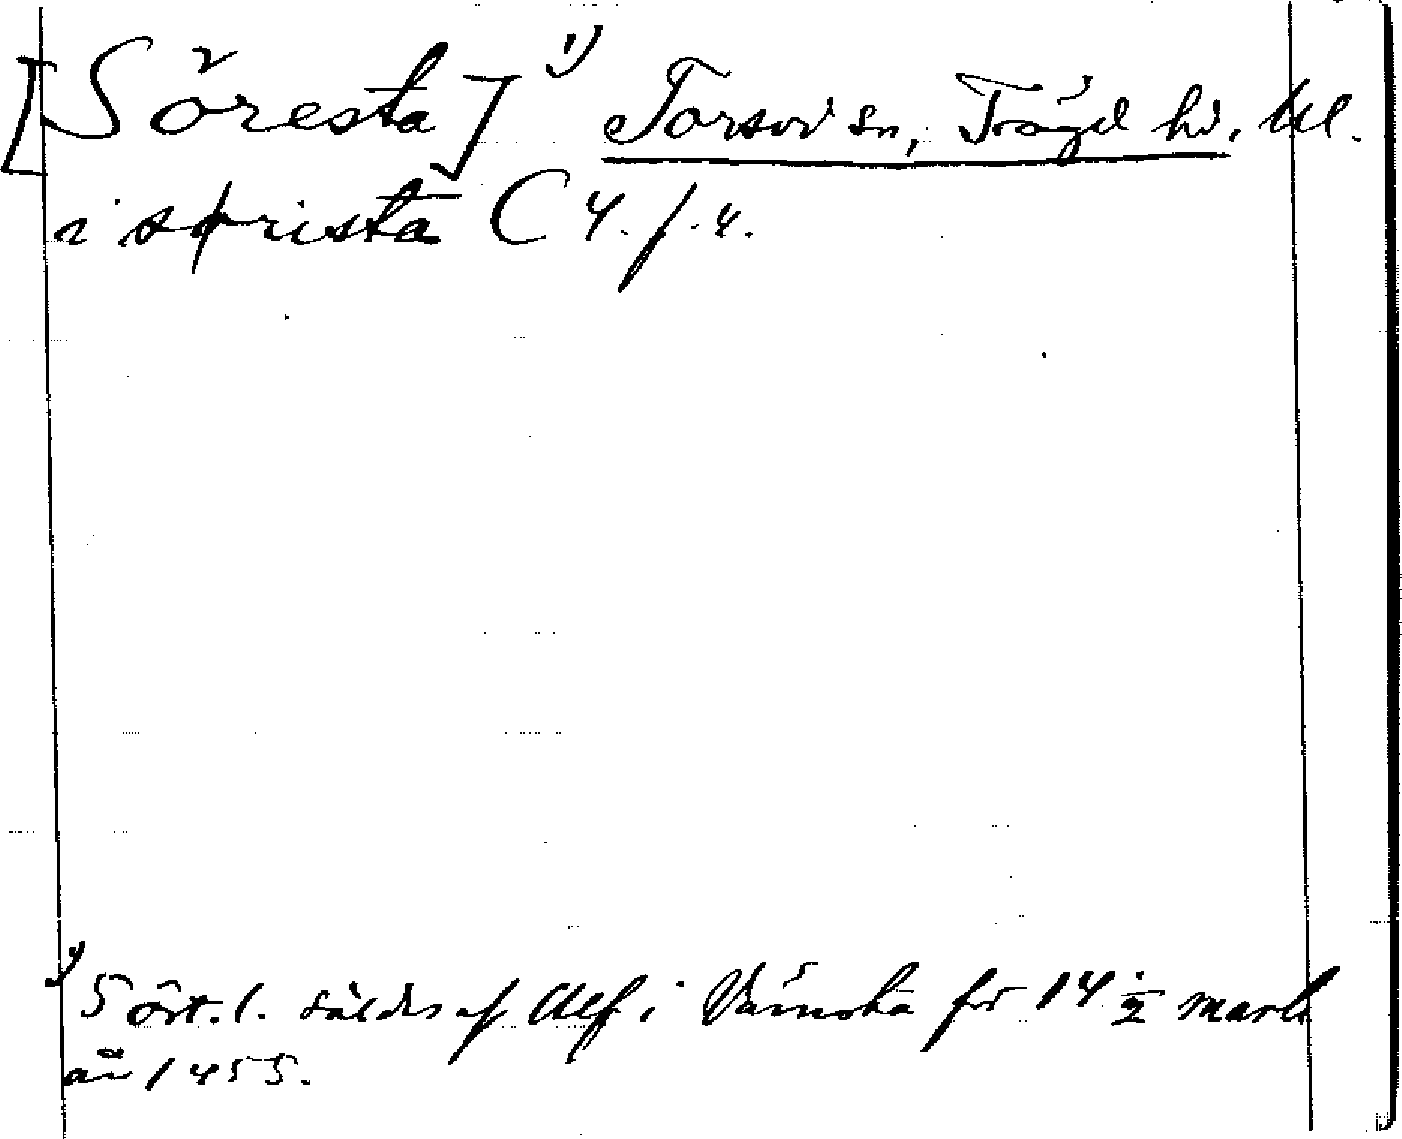 [Söresta] 1) Torsvi sn, Trögd hd. Upl.
i søristā C 4. f. 4.
1) 5 ört. l. såldes af Ulf i Vänsta för 14 1/2 mark
år 1455.